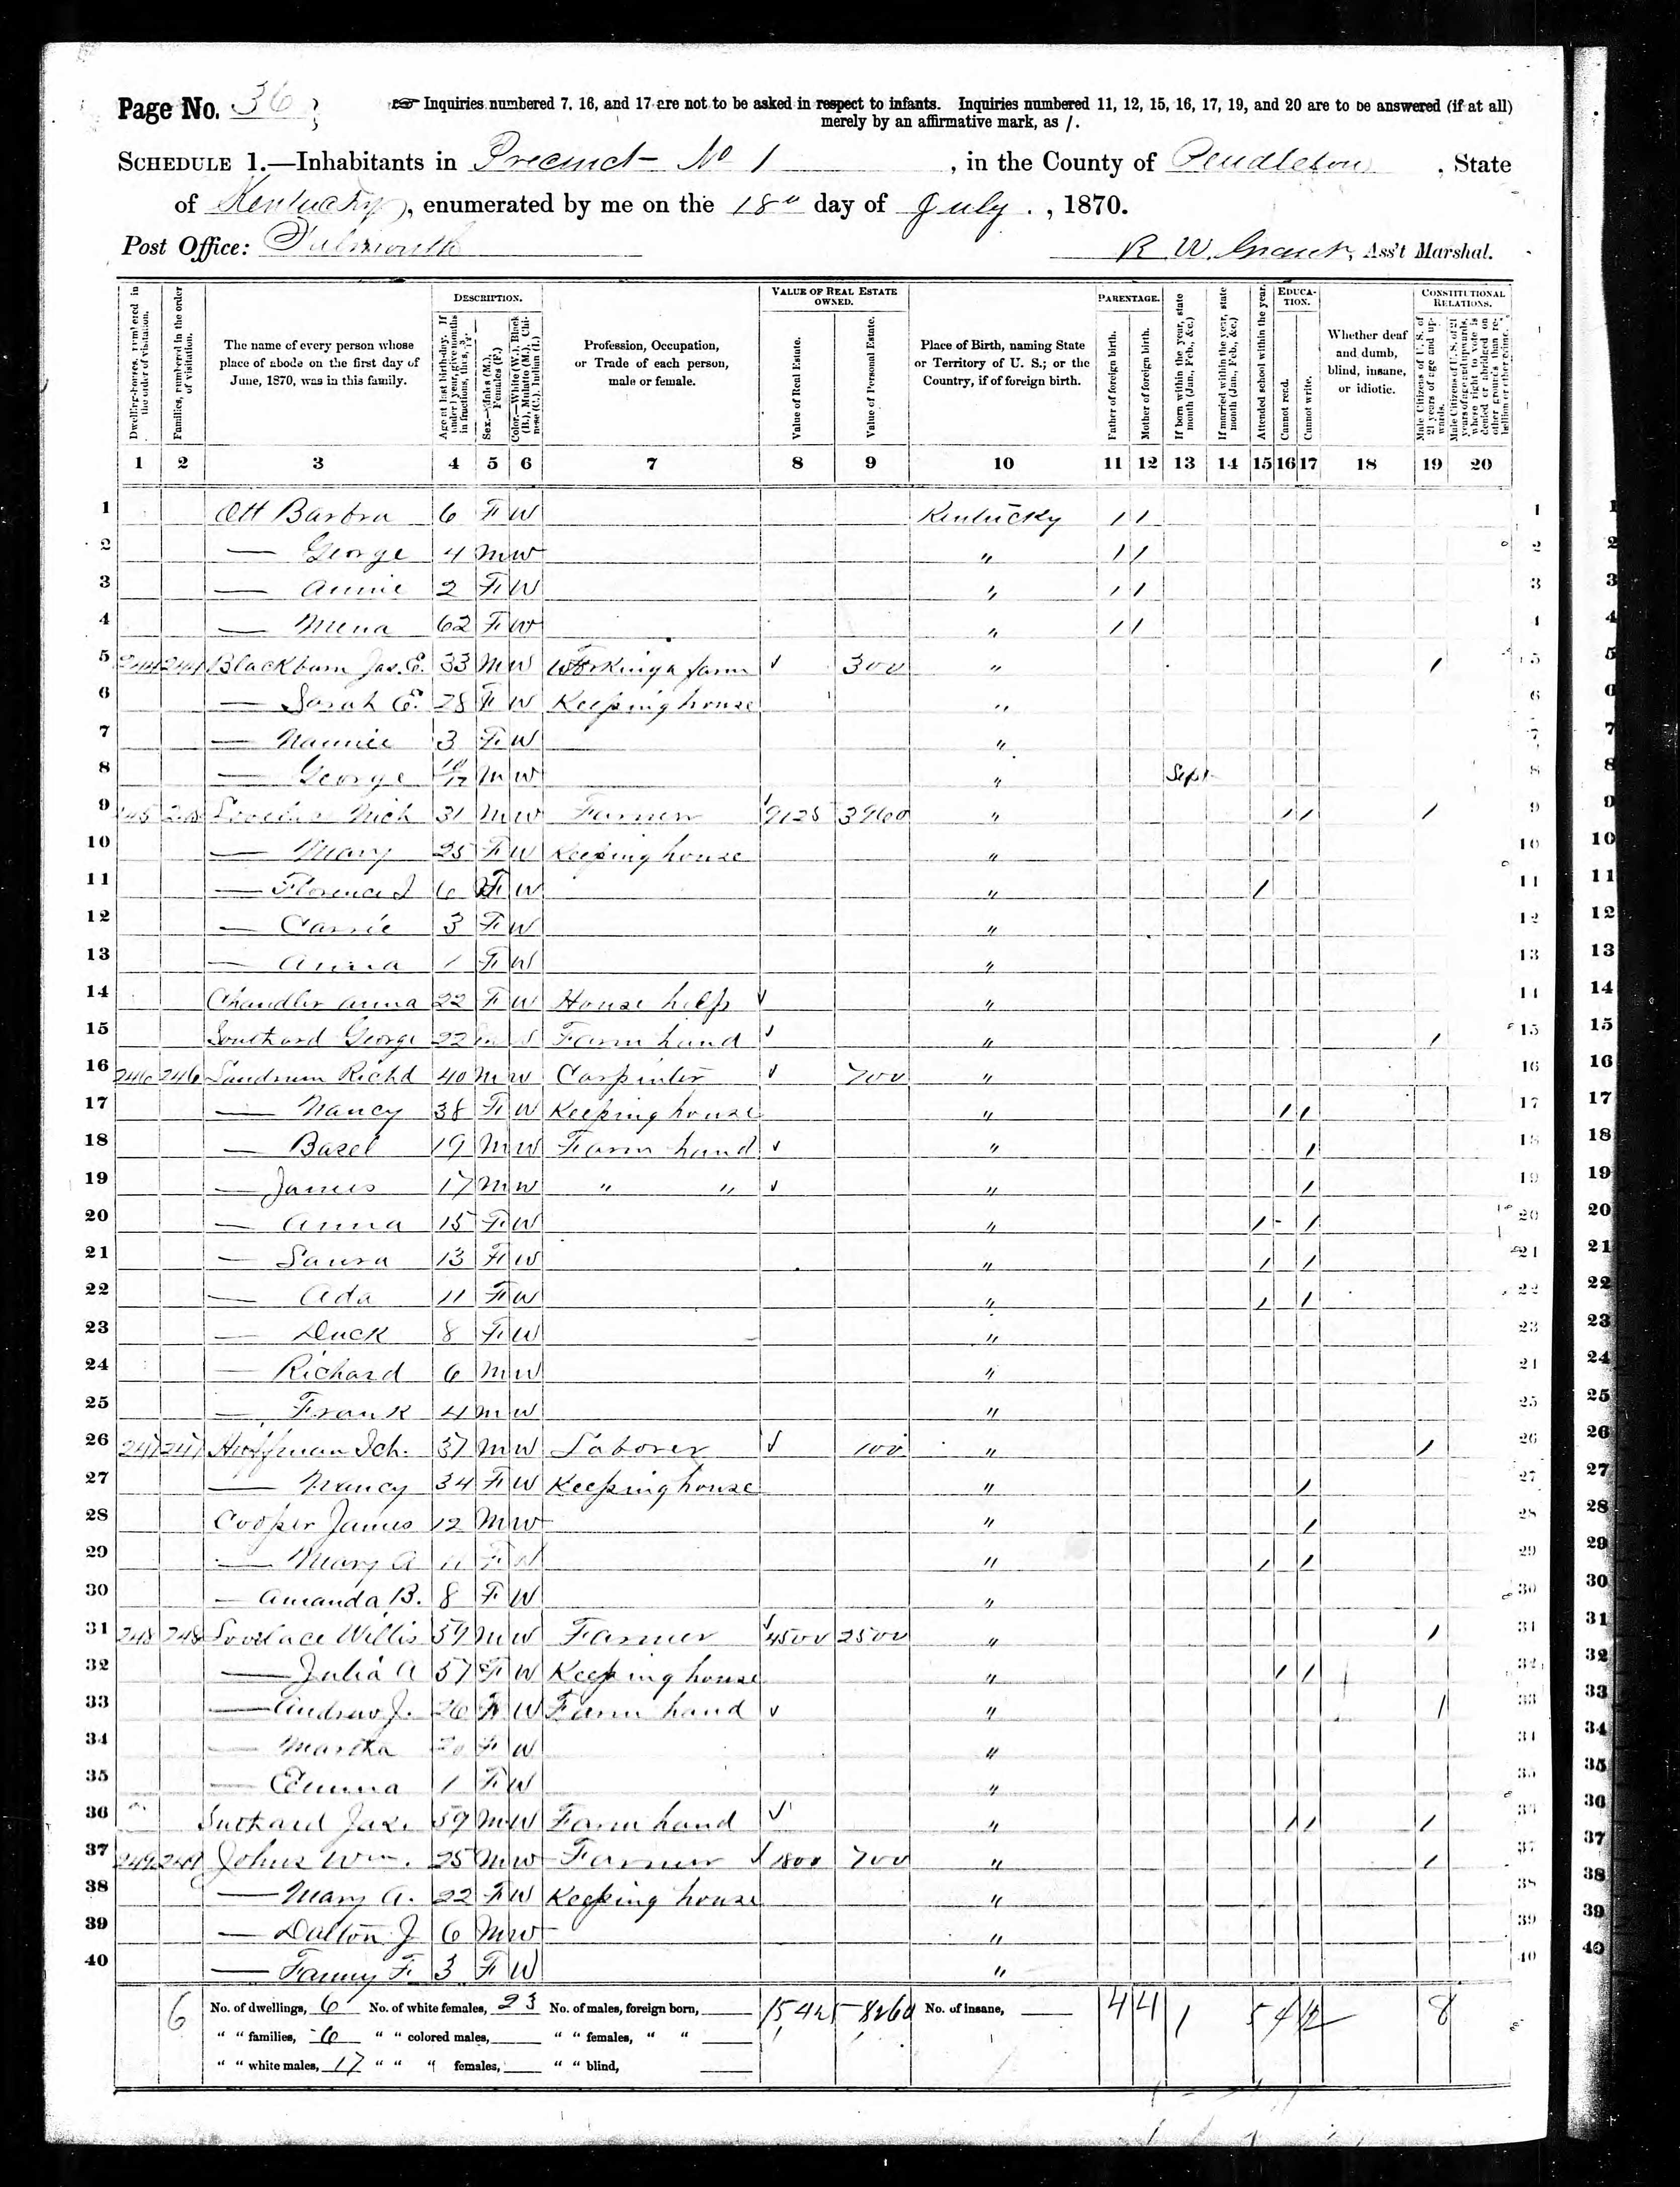 Page No. 36
Inquiries numbered 7, 16, and 17 are not to be asked in respect to infants. Inquiries numbered 11, 12, 15, 16, 17, 19, and 20 are to be answered (if at all)
merely by an affirmative mark, as /.
SCHEDULE 1.—Inhabitants in Precinct No 1, in the County of Pendleton, State
of Kentucky, enumerated by me on the 18" day of July, 1870.
Post Office: Falmouth
R. W. Grant, Ass't Marshal.
Dwelling-houses, numbered in the order of visitation.
Families, numbered in the order of visitation.
The name of every person whose place of abode on the first day of June, 1870, was in this family.
DESCRIPTION.
Age at last birth-day. If under 1 year, give months in fractions, thus, 3/12.
Sex.—Males (M.), Females (F.)
Color.—White (W.), Black (B.), Mulatto (M.), Chinese (C.), Indian (I.)
Profession, Occupation, or Trade of each person, male or female.
VALUE OF REAL ESTATE OWNED.
Value of Real Estate.
Value of Personal Estate.
Place of Birth, naming State or Territory of U. S.; or the Country, if of foreign birth.
PARENTAGE.
Father of foreign birth.
Mother of foreign birth.
If born within the year, state month (Jan., Feb., &c.)
If married within the year, state month (Jan., Feb., &c.)
Attended school within the year.
EDUCATION.
Cannot read.
Cannot write.
Whether deaf and dumb, blind, insane, or idiotic.
CONSTITUTIONAL RELATIONS.
Male Citizens of U. S. of 21 years of age and upwards.
Male Citizens of U. S. of 21 years of age and upwards, whose right to vote is denied or abridged on other grounds than rebellion or other crime.
1 2 3 4 5 6 7 8 9 10 11 12 13 14 15 16 17 18 19 20
1 Ott Barbra 6 F W Kentucky / / 1
2 — George 4 M W " / / 2
3 — Annie 2 F W " / / 3
4 — Mena 62 F W " / / 4
5 244 244 Blackburn Jas. E. 33 M W Working a farm ✓ 300 " / 5
6 — Sarah E. 28 F W Keeping house " 6
7 — Nannie 3 F W " 7
8 — George 10/12 M W " Sept 8
9 245 245 Nich 31 M W Farmer ✓ 9125 3960 " / / / 9
10 — Mary 25 F W Keeping house " 10
11 — Florence J 6 F W " / 11
12 — Carrie 3 F W " 12
13 — Anna 1 F W " 13
14 Chandler Anna 22 F W House help ✓ " 14
15 Southard George 22 Farm hand ✓ " / 15
16 246 246 Landrum Richd 40 M W Carpinter ✓ 700 " 16
17 — Nancy 38 F W Keeping house " / / 17
18 — Basel 19 M W Farm hand ✓ " / 18
19 — James 17 M W " " ✓ " / 19
20 — Anna 15 F W " / - / 20
21 — Laura 13 F W " / / 21
22 — Ada 11 F W " / / 22
23 — Duck 8 F W " 23
24 — Richard 6 M W " 24
25 — Frank 4 M W " 25
26 247 247 Huffman 37 M W Laborer ✓ 100 " / 26
27 — Nancy 34 F W Keeping house " / 27
28 Cooper James 12 M W " / 28
29 — Mary A 11 F W " / / 29
30 — Amanda B. 8 F W " 30
31 248 248 Lovelace Willis 59 M W Farmer ✓ 4500 2500 " / 31
32 — Julia A 57 F W Keeping house " / / 32
33 — Andrew J. 26 W Farm hand ✓ " / 33
34 — Martha 20 F W " 34
35 — Emma 1 F W " 35
36 Suthard 59 M W Farm hand ✓ " / / / 36
37 249 249 Johns Wm. 25 M W Farmer ✓ 1800 700 " / 37
38 — Mary A. 22 F W Keeping house " 38
39 — Dalton J 6 M W " 39
40 — Fanny F. 3 F W " 40
6 No. of dwellings, 6 No. of white females, 23 No. of males, foreign born, 15,425 8260 No. of insane, 4 4 1 5 4 12 8
" " families, 6 " " colored males, " " females, " "
" " white males, 17 " " " females, " " blind,